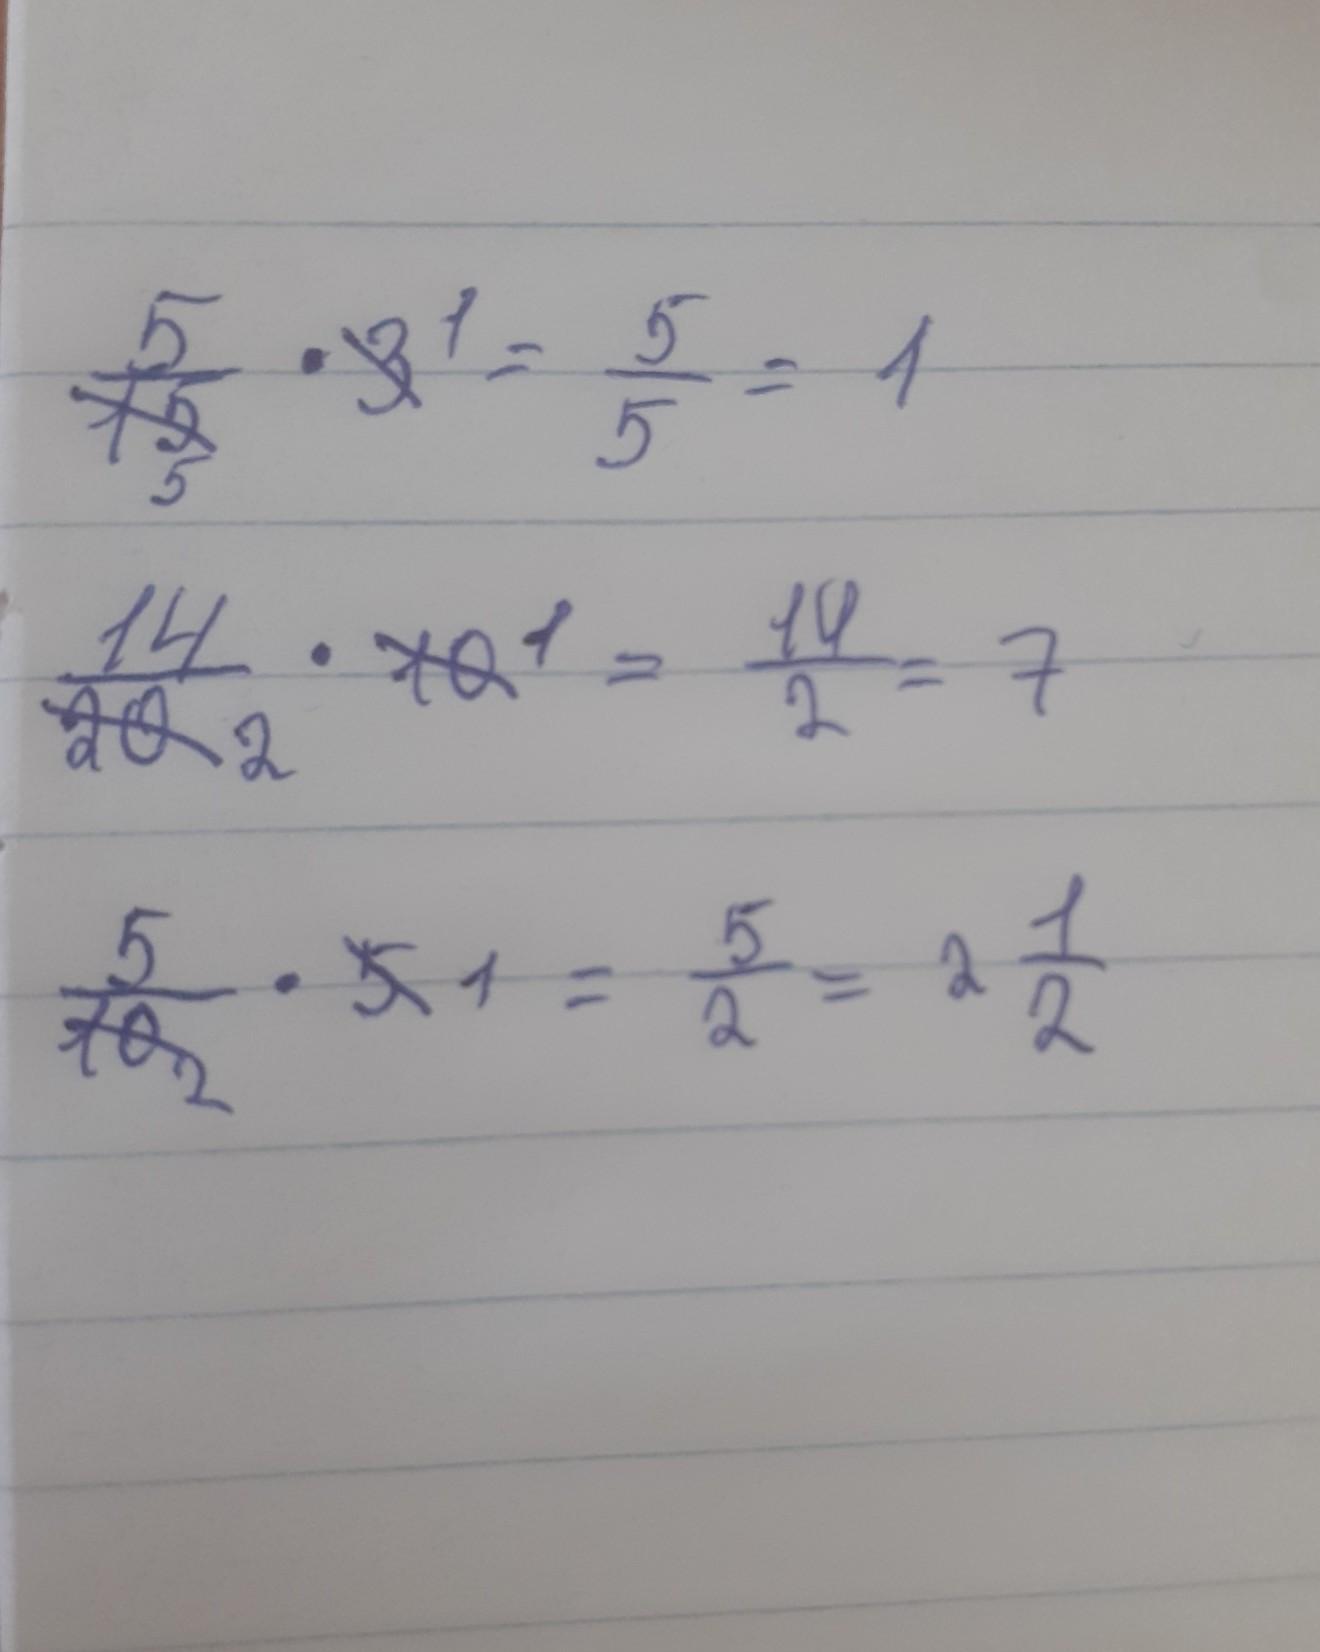 5/15 5 · 3 1 = 5/5 = 1
14/20 2 · 10 1 = 14/2 = 7
5/10 2 · 5 1 = 5/2 = 2 1/2